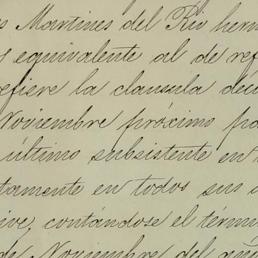 Martines del Rio herm
equivalente al de ref
efiere la clausula déc
Noviembre próximo pa
último subsistente en
tamente en todos sus
ive, contándose el térmi
de Noviembre del año